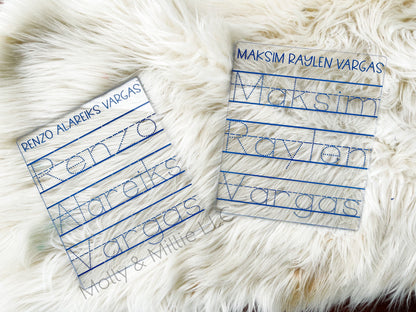 RENZO ALAREIKS VARGAS
Renzo
Alareiks
Vargas
MAKSIM RAYLEN VARGAS
Maksim
Raylen
Vargas
Molly & Millie